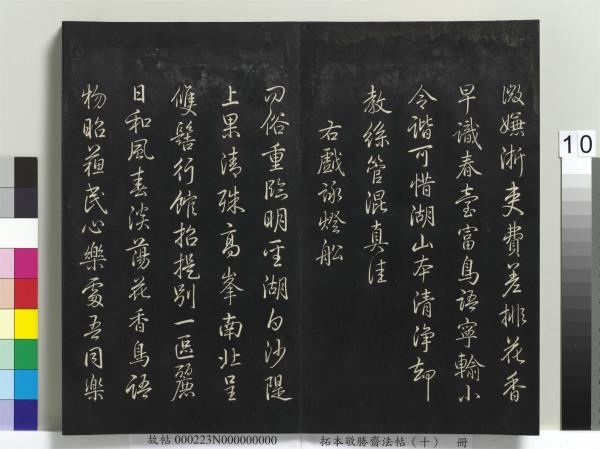 微嫌浙吏費差排花香
早識春臺富鳥語寧輸小
令諧可惜湖山本清淨却
教絲管混真佳
右戲詠燈船
問俗重臨明聖湖白沙隄
上果清殊高峯南北呈
雙髻行館招提別一區麗
日和風春淡蕩花香鳥語
物昭蘇民心樂處吾同樂
10
故帖 000223N000000000 拓本敬勝齋法帖（十） 冊